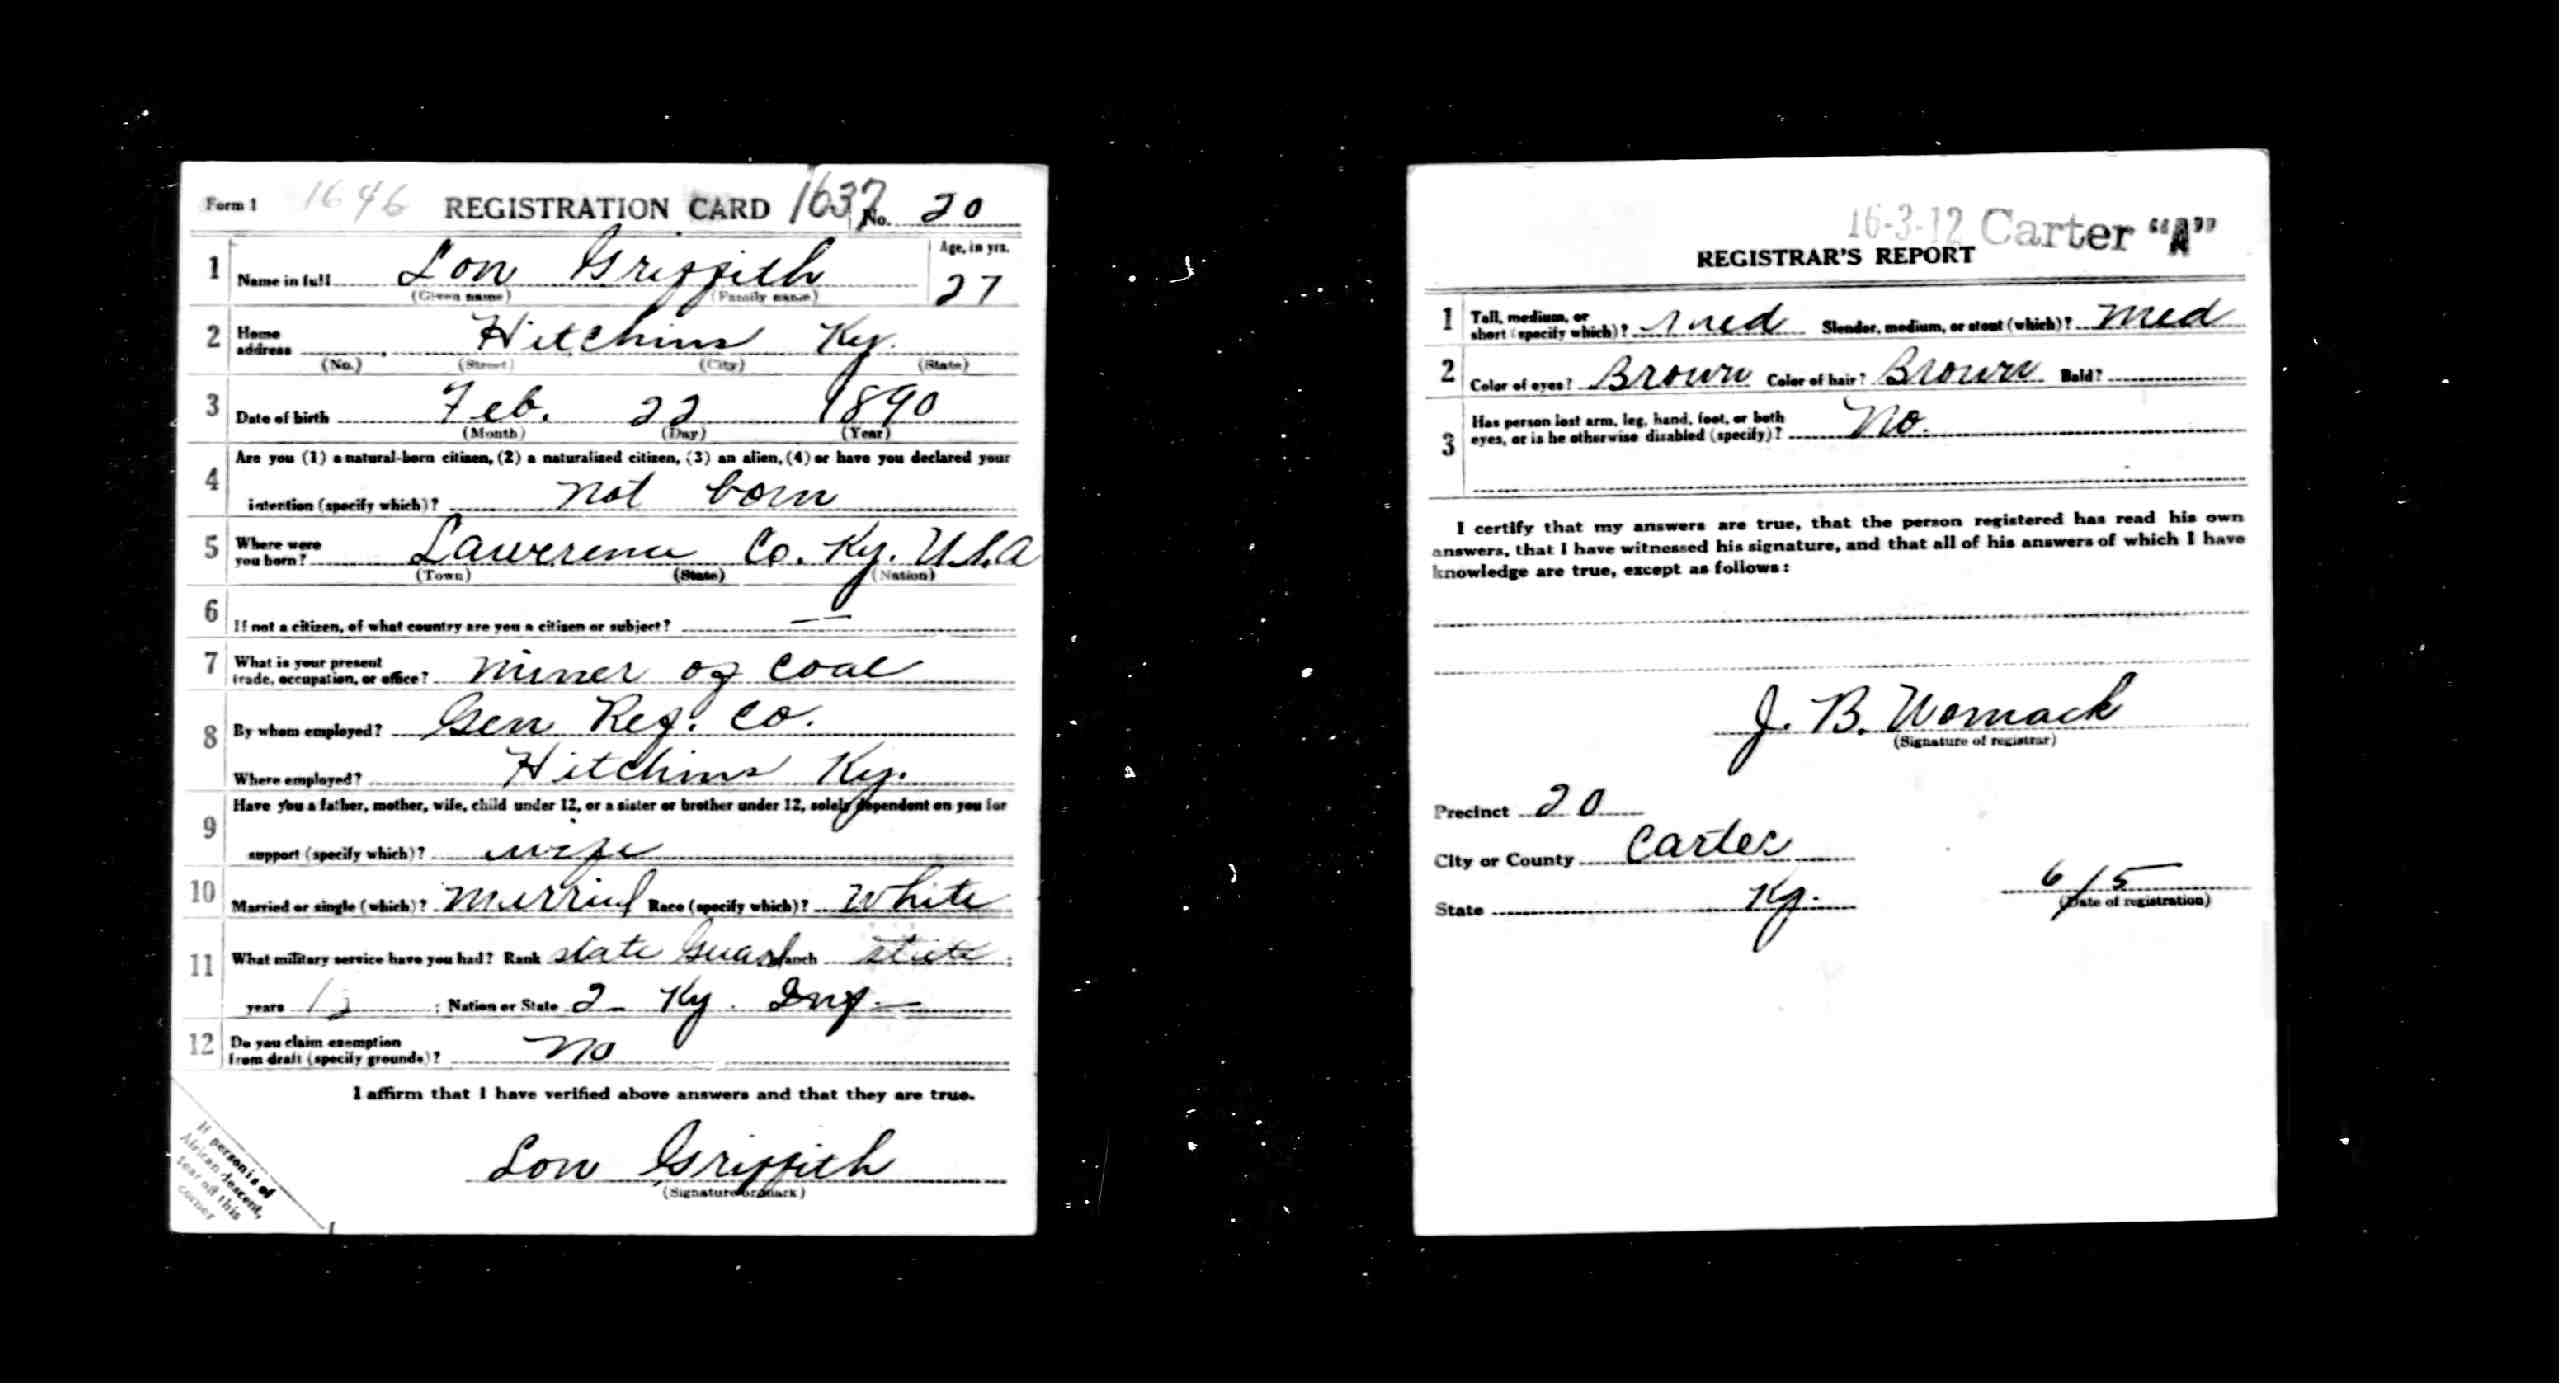 Form 1 1646 REGISTRATION CARD 1637 No. 20
1 Name in full Lon Griffith Age, in yrs. 27
(Given name) (Family name)
2 Home address Hitchins Ky.
(No.) (Street) (City) (State)
3 Date of birth Feb. 22 1890
(Month) (Day) (Year)
4 Are you (1) a natural-born citizen, (2) a naturalized citizen, (3) an alien, (4) or have you declared your
intention (specify which)? nat born
5 Where were you born? Lawrence Co. Ky. U.S.A
(Town) (State) (Nation)
6 If not a citizen, of what country are you a citizen or subject? —
7 What is your present trade, occupation, or office? miner of coal
8 By whom employed? Gen Ref. Co.
Where employed? Hitchins Ky.
9 Have you a father, mother, wife, child under 12, or a sister or brother under 12, solely dependent on you for
support (specify which)? wife
10 Married or single (which)? Married Race (specify which)? White
11 What military service have you had? Rank state Guard Branch state ;
years ; Nation or State 2 - Ky. Inf —
12 Do you claim exemption from draft (specify grounds)? no
I affirm that I have verified above answers and that they are true.
Lon Griffith
(Signature or mark)
If person is of
African descent,
tear off this
corner
16-3-12 Carter "A"
REGISTRAR'S REPORT
1 Tall, medium, or short (specify which)? med Slender, medium, or stout (which)? med
2 Color of eyes? Brown Color of hair? Brown Bald?
3 Has person lost arm, leg, hand, foot, or both eyes, or is he otherwise disabled (specify)? No.
I certify that my answers are true, that the person registered has read his own
answers, that I have witnessed his signature, and that all of his answers of which I have
knowledge are true, except as follows:
J. B. Womack
(Signature of registrar)
Precinct 20
City or County Carter
State Ky. 6/5
(Date of registration)